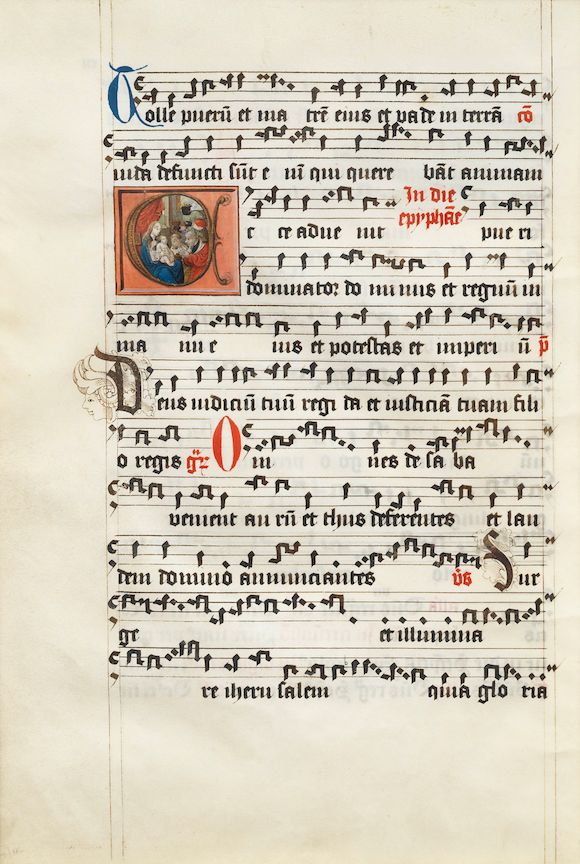 Tolle puerū et ma trē eius et vade in terrā cō
iuda defuncti sūt e nī qui quere bāt animam
In die
epyphāe
E c ce adue nit pue ri
dominator do mi nus et regnū in
ma nu e ius et potestas et imperi ū p̄
Deus iudiciū tuū regi da et iusticiā tuam fili
o regis gr̄ Om nes de sa ba
venient au rū et thus deferentes et lau
dem domino annunciantes v̄s Sur
ge et illumina
re iheru salem quia glo ria